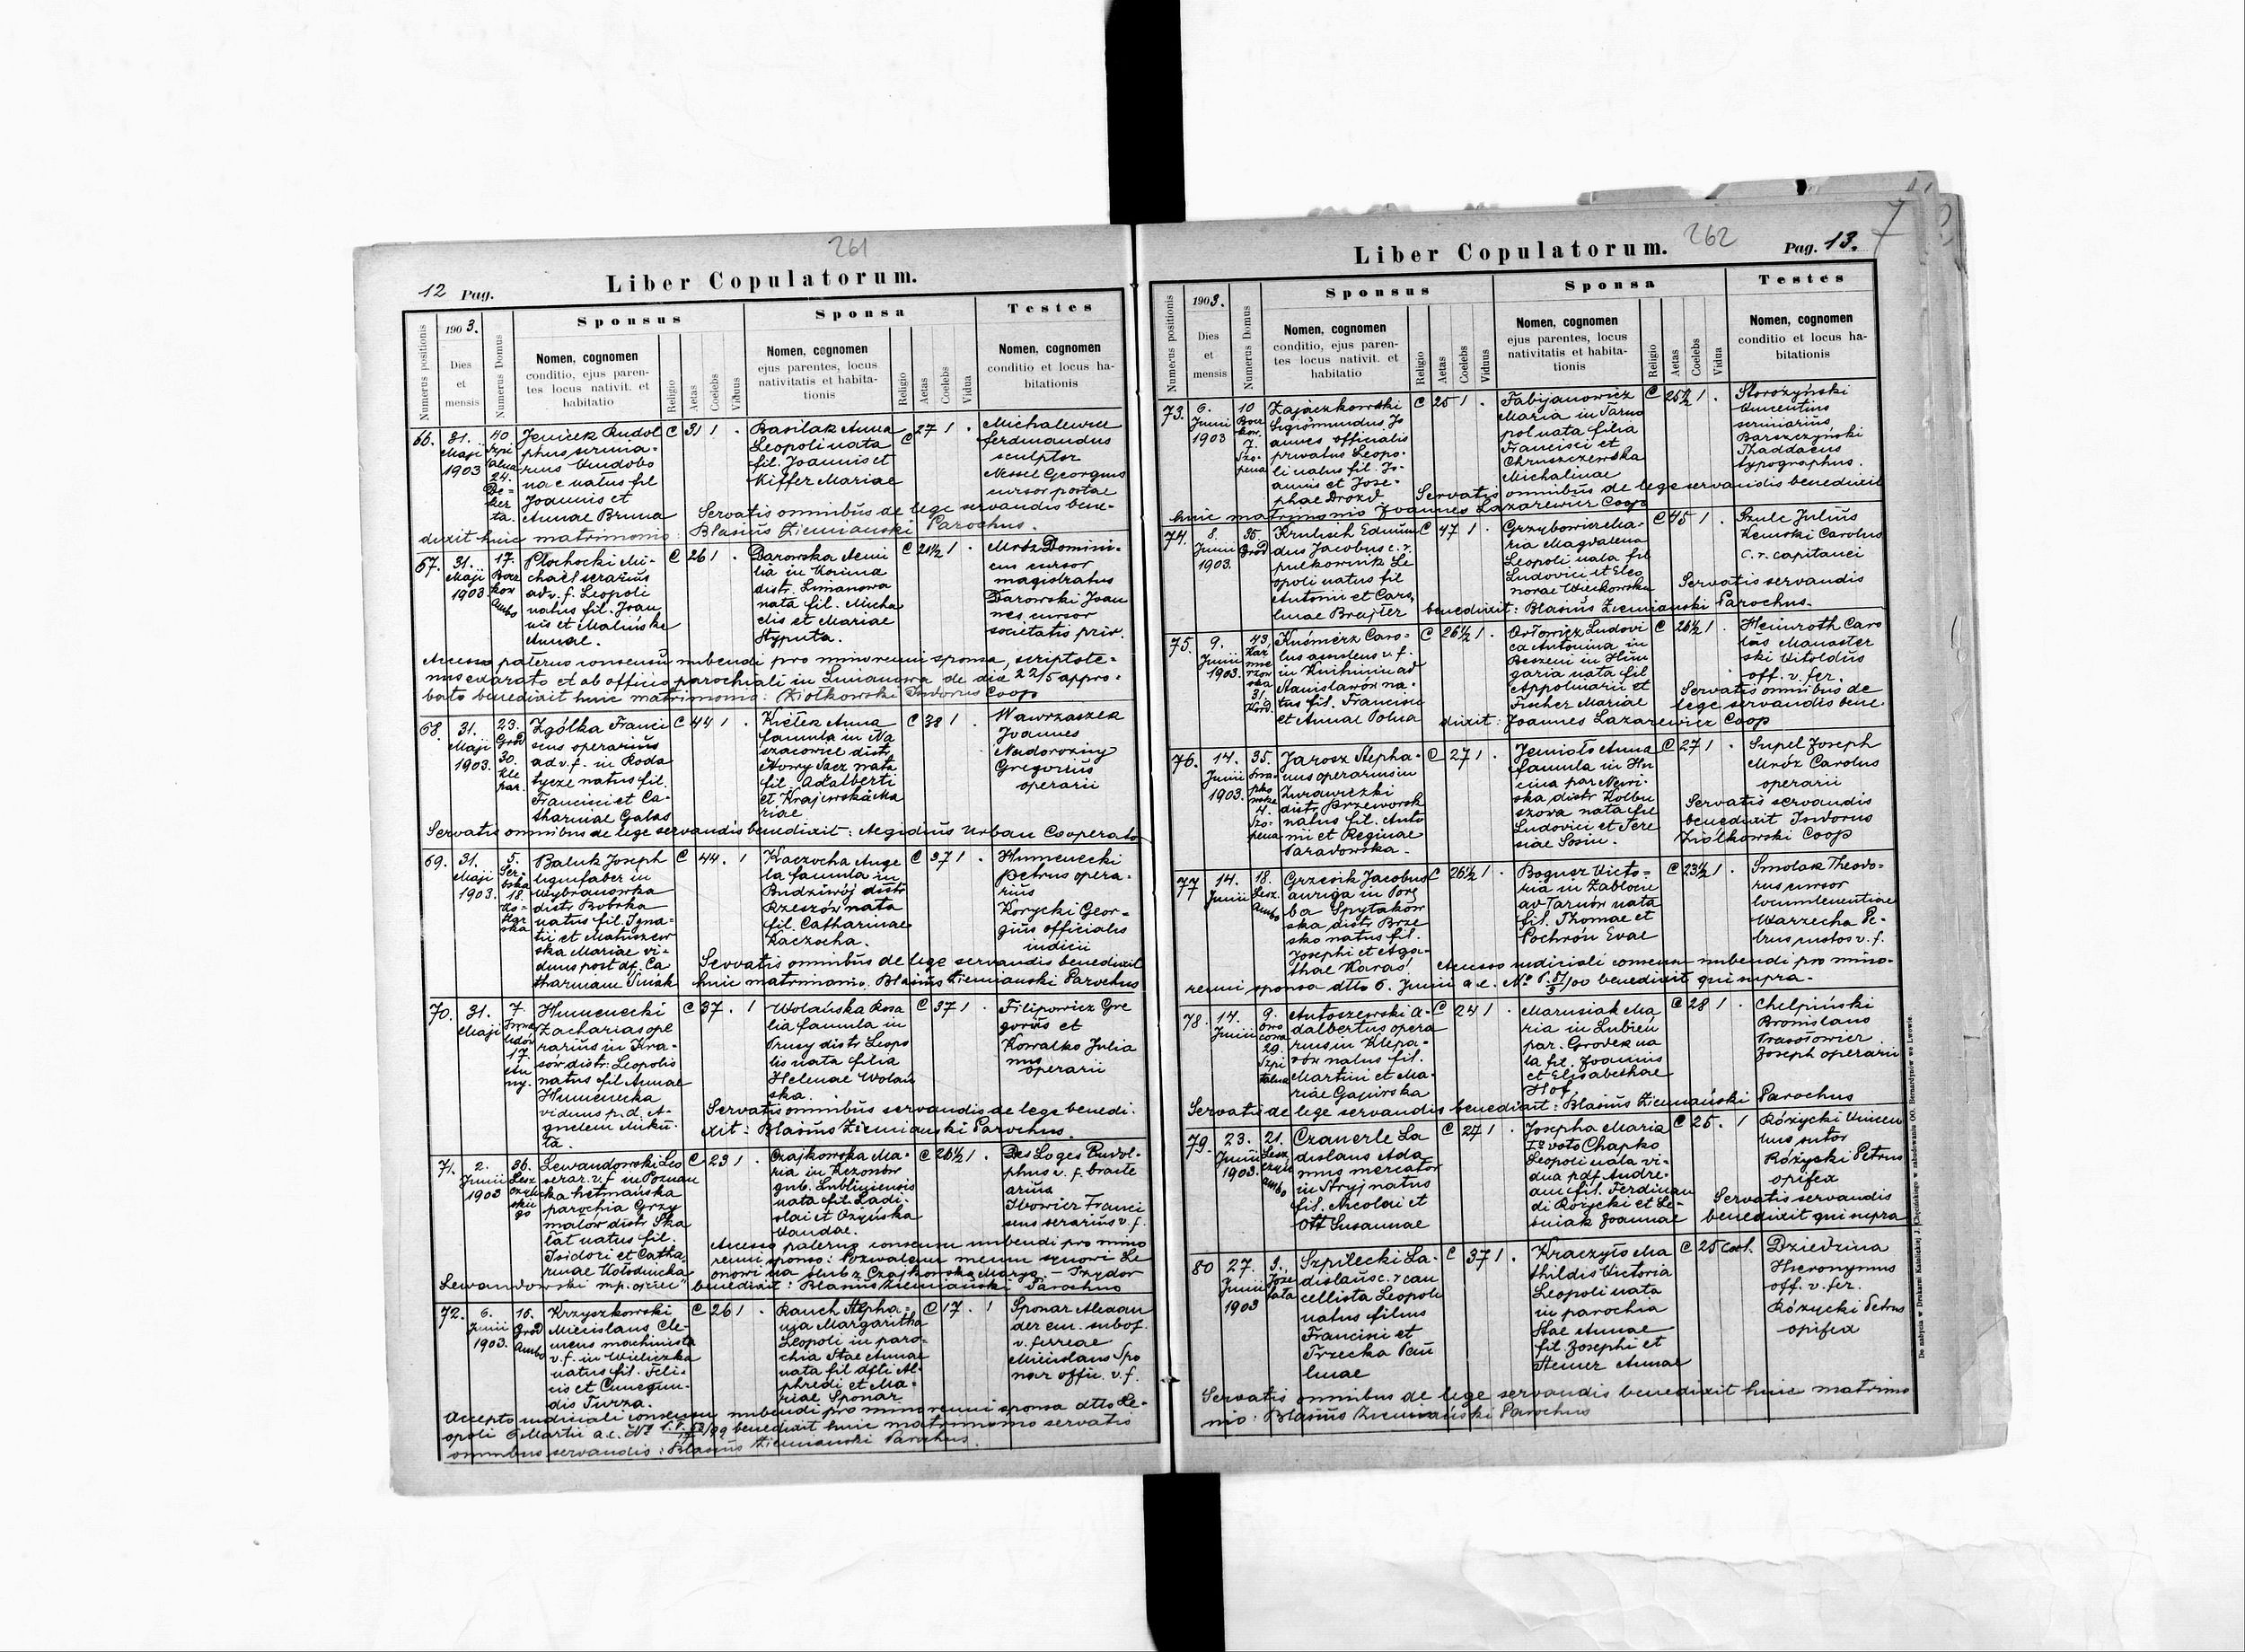 261
12 Pag.
Liber Copulatorum.
Numerus positionis
1903.
Dies
et
mensis
Numerus Domus
Sponsus
Nomen, cognomen
conditio, ejus paren-
tes locus nativit. et
habitatio
Religio
Aetas
Coelebs
Viduus
Sponsa
Nomen, cognomen
ejus parentes, locus
nativitatis et habita-
tionis
Religio
Aetas
Coelebs
Vidua
Testes
Nomen, cognomen
conditio et locus ha-
bitationis
66.
31.
Maji
1903
40.
24.
Rudol
phus
Vindobo
nae natus fil
Joannis et
Annae Bruna
C 31 1 .
Basilak Anna
Leopoli nata
fil. Joannis et
Kiffer Mariae
C 27 1 .
Ferdinandus
sculptor
Nessel Georgius
cursor portae
Servatis omnibus de lege servandis bene-
dixit huic matrimonio: Blasius Ziemianski Parochus.
67.
31.
Maji
1903.
17.
Ambo
Plochocki Mi-
chael serarius
ad v. f. Leopoli
natus fil. Joan
nis et
Annae.
C 26 1 .
Darowska
lia in
distr. Limanowa
nata fil. Micha
elis et Mariae
Hyputa.
C 21½ 1 .
Mróz Domini-
cus cursor
magistratus
Darowski Joan
nes cursor
societatis priv.
Accesso paterno consensu nubendi pro minorenni sponsa, scripto te-
nus exarato et ab officio parochiali in Limanowa de die 22/5 appro-
bato benedixit huic matrimonio: Ziołkowski Isidorus Coop
68.
31.
Maji
1903.
23.
Grod
30.
Kle
par.
Zgółka Franci
scus operarius
ad v. f. in Roda
tycze natus fil.
Francisci et Ca-
tharinae Galas
C 44 1 .
Kiełek Anna
famula in Na
szacowice distr.
Nowy Sacz nata
fil. Adalberti
et Krajewska Ma
riae
C 38 1 .
Wawrzaszek
Joannes
Nadorozny
Gregorius
operarii
Servatis omnibus de lege servandis benedixit: Aegidius Urban Cooperator
69.
31.
Maji
1903.
5.
Ser-
bska
18.
Baluk Joseph
lignifaber in
Wybranowka
distr. Bobrka
natus fil. Igna-
tii et Matuszew
ska Mariae vi-
duus post df. Ca
tharinam
C 44. . 1
Kaczocha Ange
la famula in
Budziwój distr
Rzeszów nata
fil. Catharinae
Kaczocha.
C 37 1 .
Humenecki
Petrus opera-
rius
Korycki Geor-
gius officialis
iudicii
Servatis omnibus de lege servandis benedixit
huic matrimonio. Blasius Ziemianski Parochus
70.
31.
Maji
7
17.
Humenecki
Zacharias ope
rarius in Kra-
sów distr: Leopolis
natus fil Annae
Humenecka
viduus p. d. A-
gnetem Miku-
ta.
C 37. . 1
Wolańska Rosa
lia famula in
Prusy distr Leopo
lis nata filia
Helenae Wolań
ska.
C 37 1 .
Filipowicz Gre
gorius et
Kowalko Julia
nus
operarii
Servatis omnibus servandis de lege benedi-
xit: Blasius Ziemianski Parochus.
71.
2.
Junii
1903
36.
Lesz
czyń
skie
go
Lewandowski Leo
serar. v. f. in Poznan
ka hetmańska
parochia Grzy
malow distr Ska
łat natus fil.
Isidori et Catha
rinae Kołodnicka
C 23 1 .
Czajkowska Ma-
ria in
gub. Lubliniensis
nata fil. Ladi-
slai et
Wandae.
C 26½ 1 .
Des Loges Rudol-
phus v. f. bracte
arius
Iwowicz Franci
scus serarius v. f.
Accesso paterno consensu nubendi pro mino
renni sponso: Pozwalam memu synowi Le
onowi na ślub z Czajkowską Maryą. – Izydor
Lewandowski mp. ojciec" benedixit: Blasius Ziemianski Parochus
72.
6.
Junii
1903.
16.
Grod
Ambo
Krzyszkowski
Miecislaus Cle-
mens machinista
v. f. in Wieliczka
natus fil. Feli-
cis et Cunegun-
dis Turza.
C 26 1 .
Rauch Stepha-
nia Margaritha
Leopoli in paro-
chia Stae Annae
nata fil dfti Al-
phredi et Ma-
riae Sponar
C 17. . 1
Sponar Alexan
der em. subof.
v. ferreae
Miecislaus Spo
nar offic. v. f.
Accepto iudiciali consensu nubendi pro minorenni sponsa dtto Le-
opoli 6 Martii a. c. benedixit huic matrimonio servatis
omnibus servandis: Blasius Ziemianski Parochus.
262
7
Liber Copulatorum.
Pag. 13.
Numerus positionis
1903.
Dies
et
mensis
Numerus Domus
Sponsus
Nomen, cognomen
conditio, ejus paren-
tes locus nativit. et
habitatio
Religio
Aetas
Coelebs
Viduus
Sponsa
Nomen, cognomen
ejus parentes, locus
nativitatis et habita-
tionis
Religio
Aetas
Coelebs
Vidua
Testes
Nomen, cognomen
conditio et locus ha-
bitationis
73.
6.
Junii
1903
10
7.
Szo-
pena
Zajączkowski
Sigismundus Jo
annes officialis
privatus Leopo-
li natus fil. Jo-
annis et Jose-
phae Drozd
C 25 1 .
Fabijanowicz
Maria in Tarno
pol nata filia
Francisci et
Chruszczewska
Michalinae
C 25½ 1 .
Storożyński
Vincentius
Barszczyński
Thaddaeus
typographus.
Servatis omnibus de lege servandis benedixit
huic matrimonio Joannes Lazarewicz Coop
74.
8.
Junii
1903.
35.
Grod
Krulisch Edmun
dus Jacobus c. r.
pulkownik Le
opoli natus fil
Antonii et Caro
linae Brajter
C 47 1 .
Grzybowicz Ma-
ria Magdalena
Leopoli nata fil
Ludovici et Eleo
norae Wieckowska
C 45 1 .
Szulc Julius
Kenski Carolus
c. r. capitanei
Servatis servandis
benedixit: Blasius Ziemianski Parochus.
75.
9.
Junii
1903.
43.
31.
Kuśmierz Caro-
lus assistens v. f.
in Knihinin ad
Stanislawów na-
tus fil. Francisci
et Annae Polna
C 26½ 1 .
Ludovi
ca Antonina in
in Hun
garia nata fil
Appolinarii et
Fischer Mariae
C 26½ 1 .
Heinroth Caro
lus Manaster
ski Vitoldus
off. v. fer.
Servatis omnibus de
lege servandis bene
dixit: Joannes Lazarewicz Coop
76.
14.
Junii
1903.
35.
4.
Szo-
pena
Jarosz Stepha-
nus operarius in
Żurawiczki
distr. Przeworsk
natus fil. Anto
nii et Reginae
Paradowska.
C 27 1 .
Jemioło Anna
famula in Hu
cina par Niwi
ska distr Kolbu
szowa nata fil
Ludovici et Tere
siae Sosin.
C 27 1 .
Supel Joseph
Mróz Carolus
operarii
Servatis servandis
benedixit Isidorus
Ziółkowski Coop
77
14.
Junii
18.
Lesz.
Ambo
Grzesik Jacobus
auriga in Porę
ba Spytakow
ska distr. Brze
sko natus fil.
Josephi et Aga-
thae Karaś
C 26½ 1 .
Bogusz Victo-
ria in Zablocie
ad Tarnów nata
fil. Thomae et
Pochroń Evae
C 23½ 1 .
Smolak Theodo-
rus cursor
Warzecha Pe-
trus custos v. f.
Accesso iudiciali consensu nubendi pro mino-
renni sponsa dtto 6. Junii a. c. benedixit qui supra.
78.
14.
Junii
9.
Owo
cowa
29.
Szpi
talna
Antoszewski A-
dalbertus opera
rius in Klepa-
rów natus fil.
Martini et Ma-
riae Gajewska
C 24 1 .
Marusiak Ma
ria in Lubien
par. Grodek na
ta fil. Joannis
et Elisabethae
Hof
C 28 1 .
Chelpiński
Bronislaus
Joseph operarii
Servatis de lege servandis benedixit: Blasius Ziemiański Parochus
79.
23.
Junii
1903.
21.
Lesz
czyń
Ambo
Czauerle La
dislaus Ada
mus mercator
in Stryj natus
fil. Nicolai et
Ott Susannae
C 27 1 .
Josepha Maria
I° voto Chapko
Leopoli nata vi-
dua p df. Andre-
am fil. Ferdinan
di Różycki et Le-
śniak Joannae
C 25. . 1
Różycki Vincen
tius sutor
Różycki Petrus
opifex
Servatis servandis
benedixit qui supra
80
27.
Junii
1903
9.
Joze
fata
Szpilecki La-
dislaus c. r can
cellista Leopoli
natus filius
Francisci et
Trzecka Pau
linae
C 37 1 .
Kraczyło Ma
thildis Victoria
Leopoli nata
in parochia
Stae Annae
fil. Josephi et
Steiner Annae
C 25 coel.
Dziedzina
Hieronymus
off. v. fer.
Różycki Petrus
opifex
Servatis omnibus de lege servandis benedixit huic matrimo
nio: Blasius Ziemiański Parochus